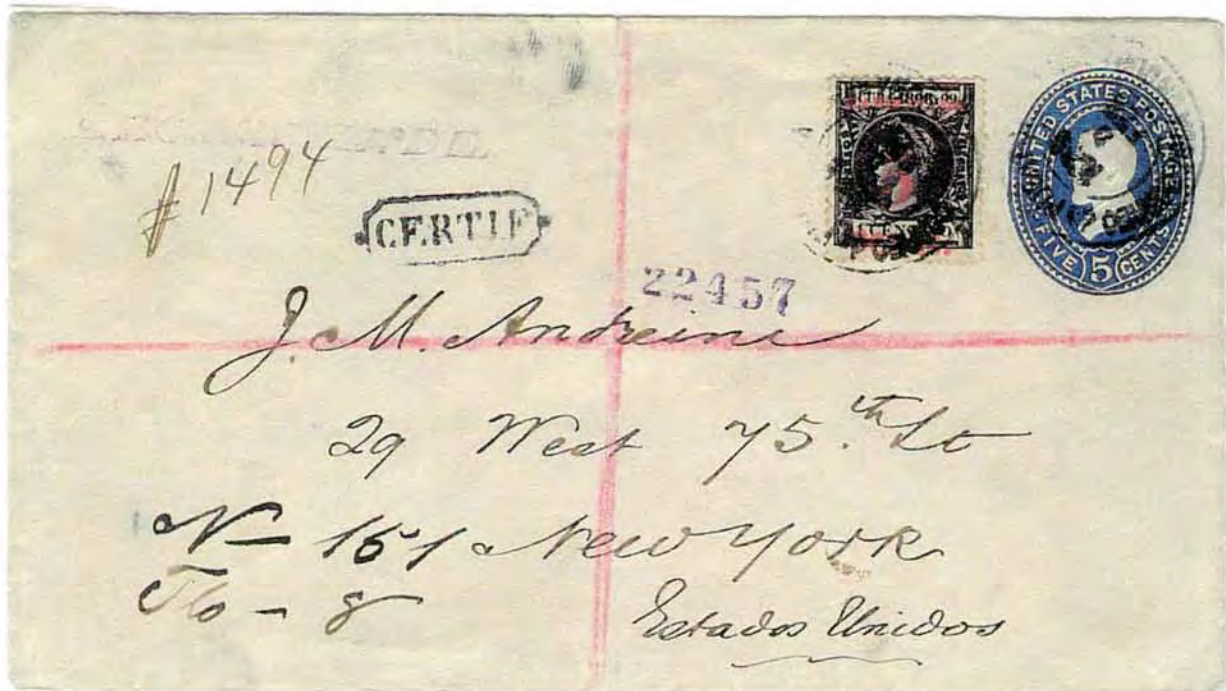 UNITED STATES POSTAGE
FIVE 5 CENTS
# 1494
CERTIF
22457
J. M. Andreini
29 West 75.th St
N 151 New York
Fo - 8
Estados Unidos